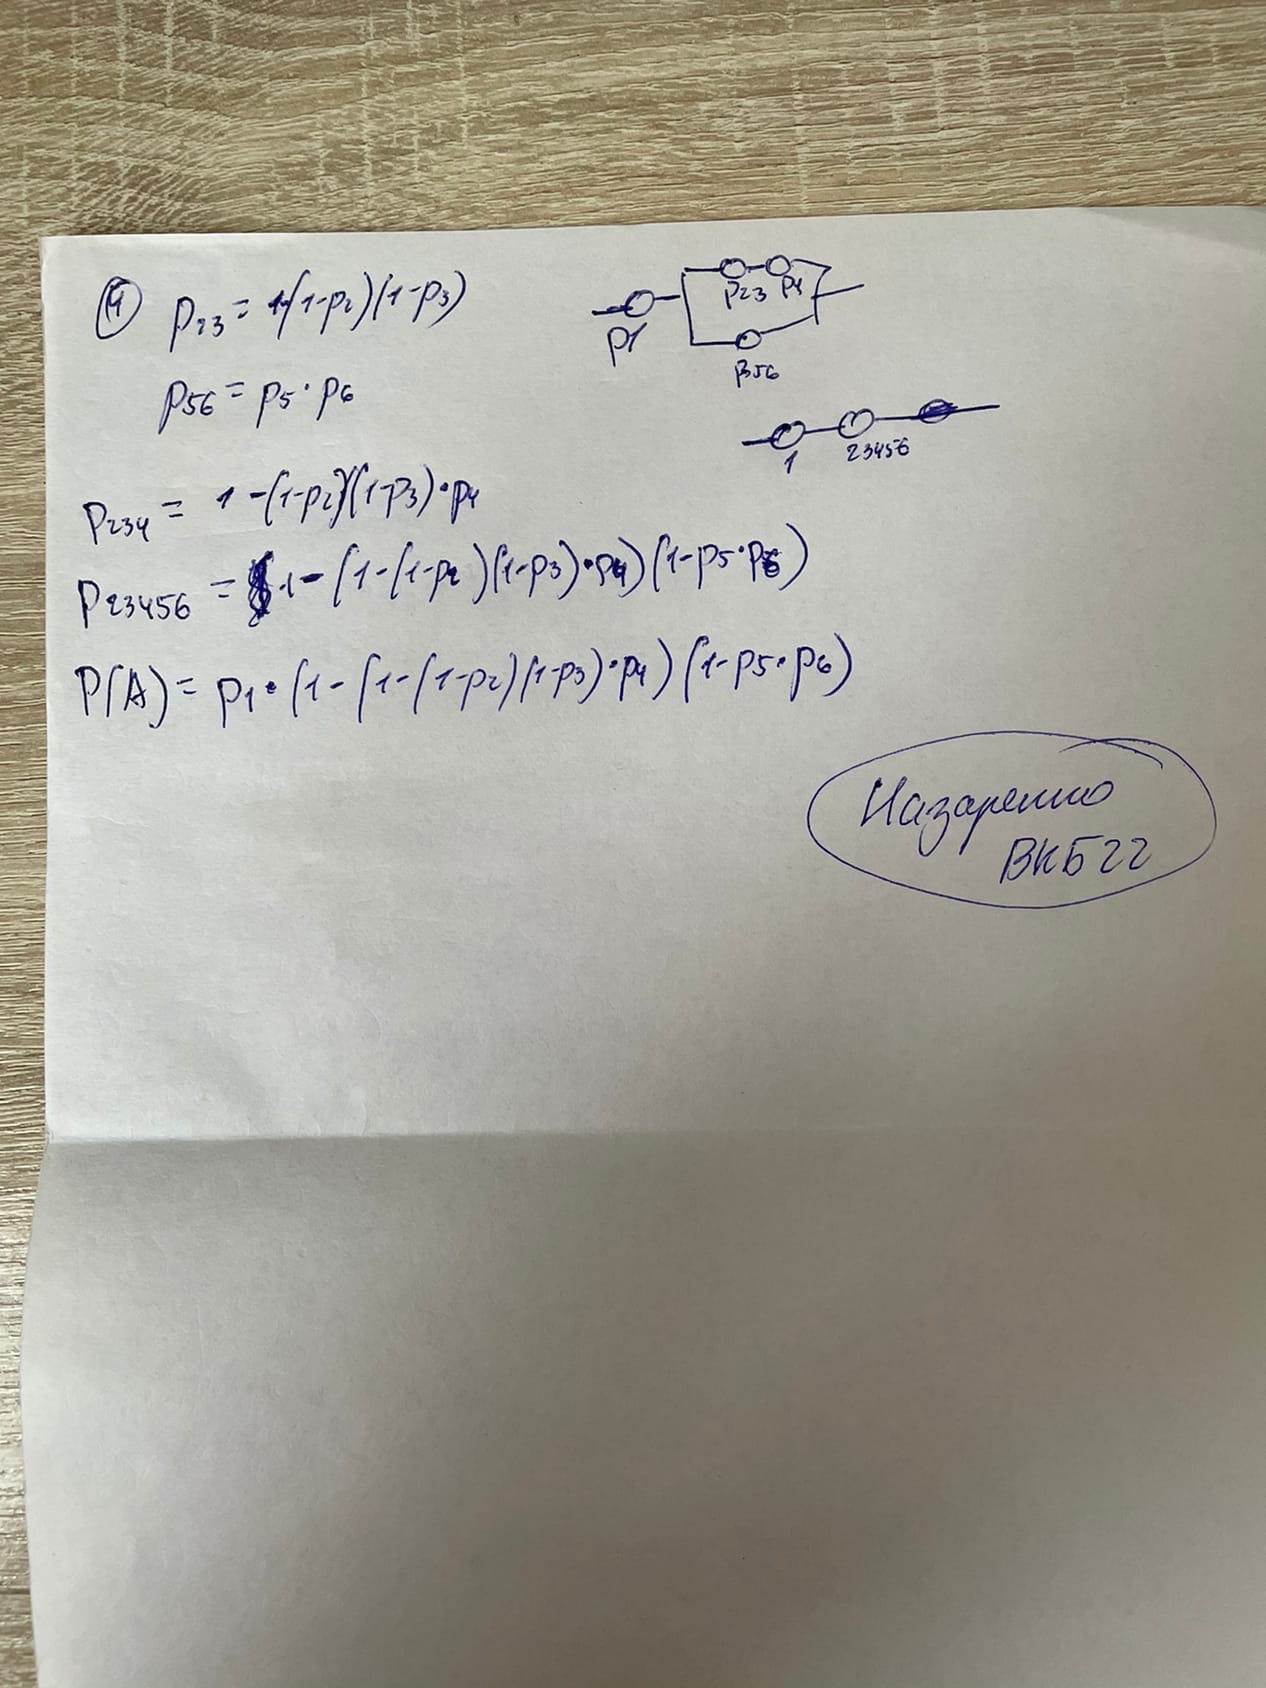 ④ p23 = 1-(1-p2)(1-p3)
p1 p23 p4
p56
p56 = p5 · p6
1 23456
p234 = 1-(1-p2)(1-p3)·p4
p23456 = 1-(1-(1-p2)(1-p3)·p4)(1-p5·p6)
P(A) = p1·(1-(1-(1-p2)(1-p3)·p4)(1-p5·p6)
Назаренко
ВКБ22